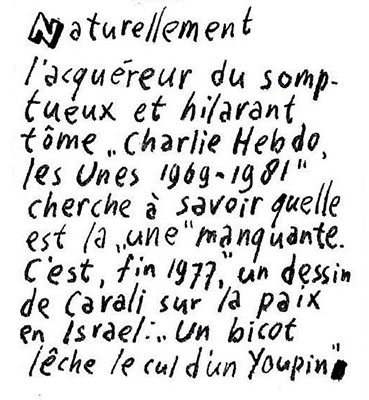 Naturellement
l'acquéreur du somp-
tueux et hilarant
tôme „Charlie Hebdo,
les Unes 1969-1981"
cherche à savoir quelle
est la „une" manquante.
C'est, fin 1977, un dessin
de Carali sur la paix
en Israel: „Un bicot
lêche le cul d'un Youpin"